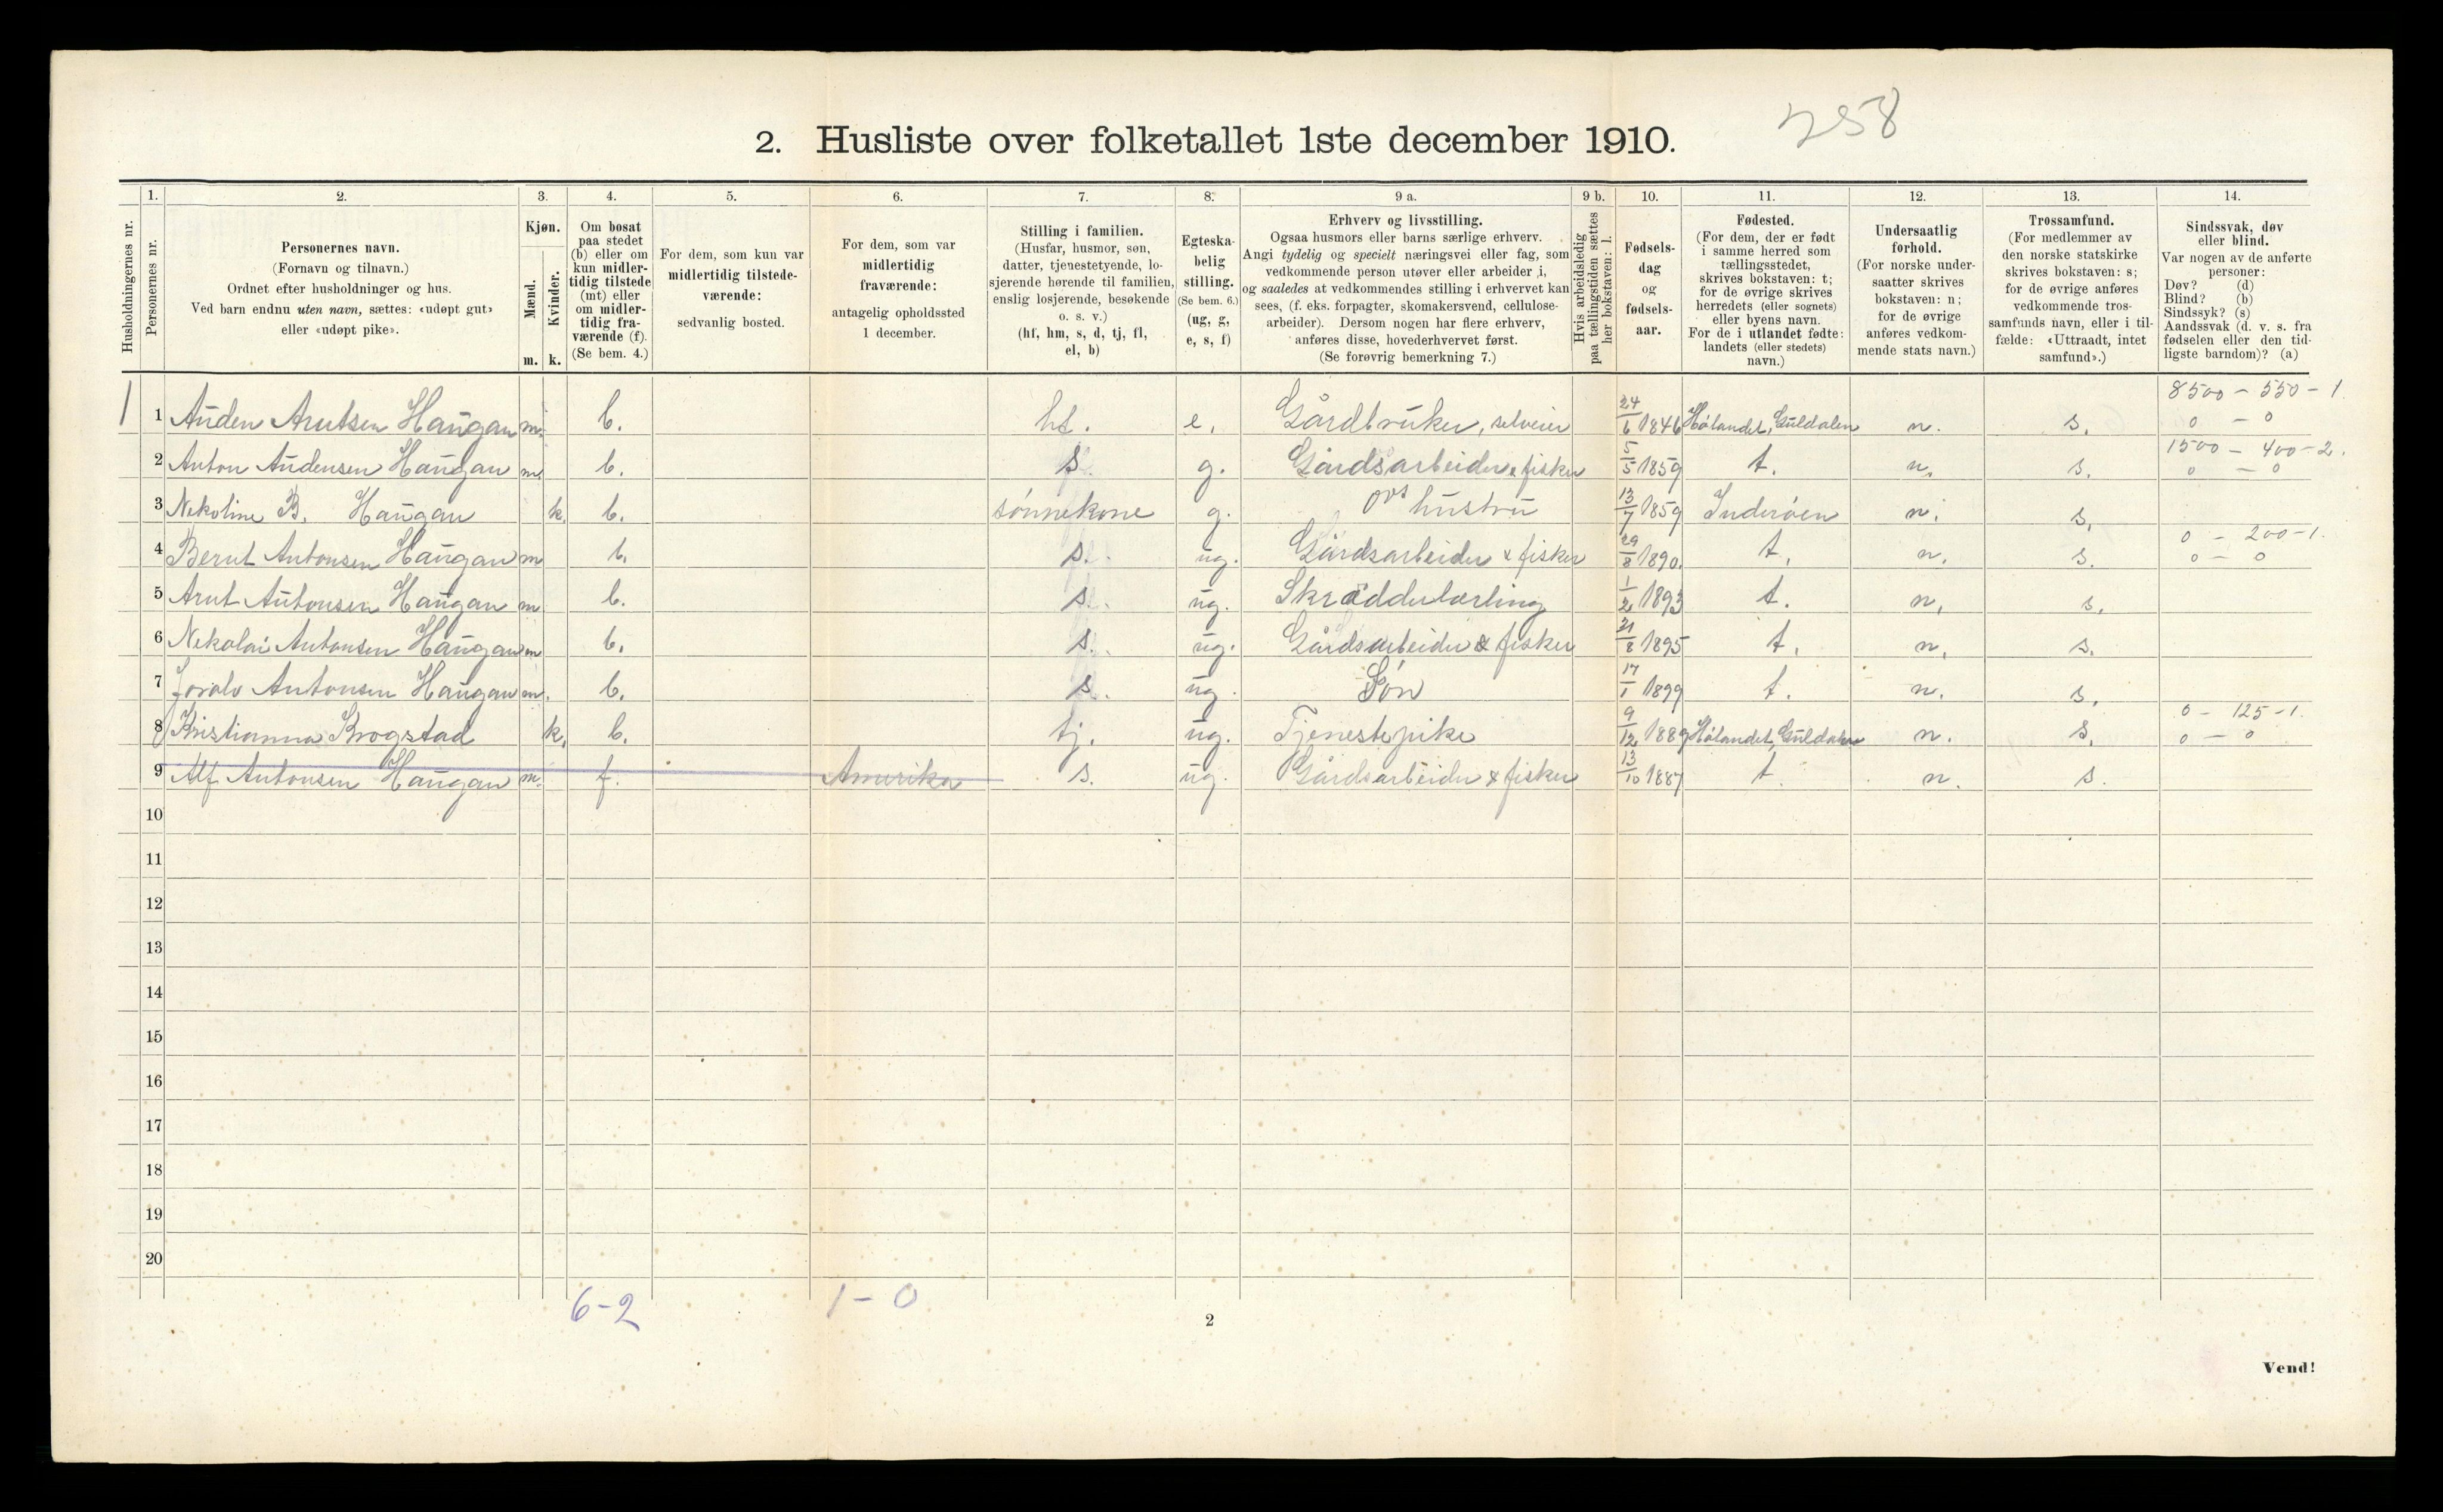 258
2. Husliste over folketallet 1ste december 1910.
Husholdningernes nr.
1.
Personernes nr.
2.
Personernes navn.
(Fornavn og tilnavn.)
Ordnet efter husholdninger og hus.
Ved barn endnu uten navn, sættes: «udøpt gut»
eller «udøpt pike».
3.
Kjøn.
Mænd.
Kvinder.
m. k.
4.
Om bosat
paa stedet
(b) eller om
kun midler-
tidig tilstede
(mt) eller
om midler-
tidig fra-
værende (f).
(Se bem. 4.)
5.
For dem, som kun var
midlertidig tilstede-
værende:
sedvanlig bosted.
6.
For dem, som var
midlertidig
fraværende:
antagelig opholdssted
1 december.
7.
Stilling i familien.
(Husfar, husmor, søn,
datter, tjenestetyende, lo-
sjerende hørende til familien,
enslig losjerende, besøkende
o. s. v.)
(hf, hm, s, d, tj, fl,
el, b)
8.
Egteska-
belig
stilling.
(Se bem. 6.)
(ug, g,
e, s, f)
9 a.
Erhverv og livsstilling.
Ogsaa husmors eller barns særlige erhverv.
Angi tydelig og specielt næringsvei eller fag, som
vedkommende person utøver eller arbeider i,
og saaledes at vedkommendes stilling i erhvervet kan
sees, (f. eks. forpagter, skomakersvend, cellulose-
arbeider). Dersom nogen har flere erhverv,
anføres disse, hovederhvervet først.
(Se forøvrig bemerkning 7.)
9 b.
Hvis arbeidsledig
paa tællingstiden sættes
her bokstaven: l.
10.
Fødsels-
dag
og
fødsels-
aar.
11.
Fødested.
(For dem, der er født
i samme herred som
tællingsstedet,
skrives bokstaven: t;
for de øvrige skrives
herredets (eller sognets)
eller byens navn.
For de i utlandet fødte:
landets (eller stedets)
navn.)
12.
Undersaatlig
forhold.
(For norske under-
saatter skrives
bokstaven: n;
for de øvrige
anføres vedkom-
mende stats navn.)
13.
Trossamfund.
(For medlemmer av
den norske statskirke
skrives bokstaven: s;
for de øvrige anføres
vedkommende tros-
samfunds navn, eller i til-
fælde: «Uttraadt, intet
samfund».)
14.
Sindssvak, døv
eller blind.
Var nogen av de anførte
personer:
Døv? (d)
Blind? (b)
Sindssyk? (s)
Aandssvak (d. v. s. fra
fødselen eller den tid-
ligste barndom)? (a)
8500 - 550 - 1.
1 1 Auden Arntsen Haugan m. b. hf. e. Gårdbruker, selveier 24/6 1846 Hølandet, Guldalen n. s. 0 - 0
1500 - 400 - 2.
2 Anton Audensen Haugan m. b. s. g. Gårdsarbeider & fisker 5/5 1859 t. n. s. 0 - 0
3 Nekoline B. Haugan k. b. sønnekone g. hustru 13/7 1859 Inderøen n. s.
0 - 200 - 1.
4 Bernt Antonsen Haugan m b. s. ug. Gårdsarbeider & fisker 29/8 1890. t. n. s. 0 - 0
5 Arnt Antonsen Haugan m b. s. ug. Skrædderlærling 1/2 1893 t. n. s.
6 Nekolai Antonsen Haugan m b. s. ug. Gårdsarbeider & fisker 21/8 1895 t. n. s.
7 Antonsen Haugan m. b. s. ug. Søn 17/1 1899 t. n. s.
0 - 125 - 1.
8 Kristianna Krogstad k. b. tj. ug. Tjenestepike 9/12 1889 Hølandet, Guldalen n. s. 0 - 0
9 Alf Antonsen Haugan m. f. Amerika s. ug. Gårdsarbeider & fisker 13/10 1887 t. n. s.
10
11
12
13
14
15
16
17
18
19
20
6-2 1-0
2
Vend!